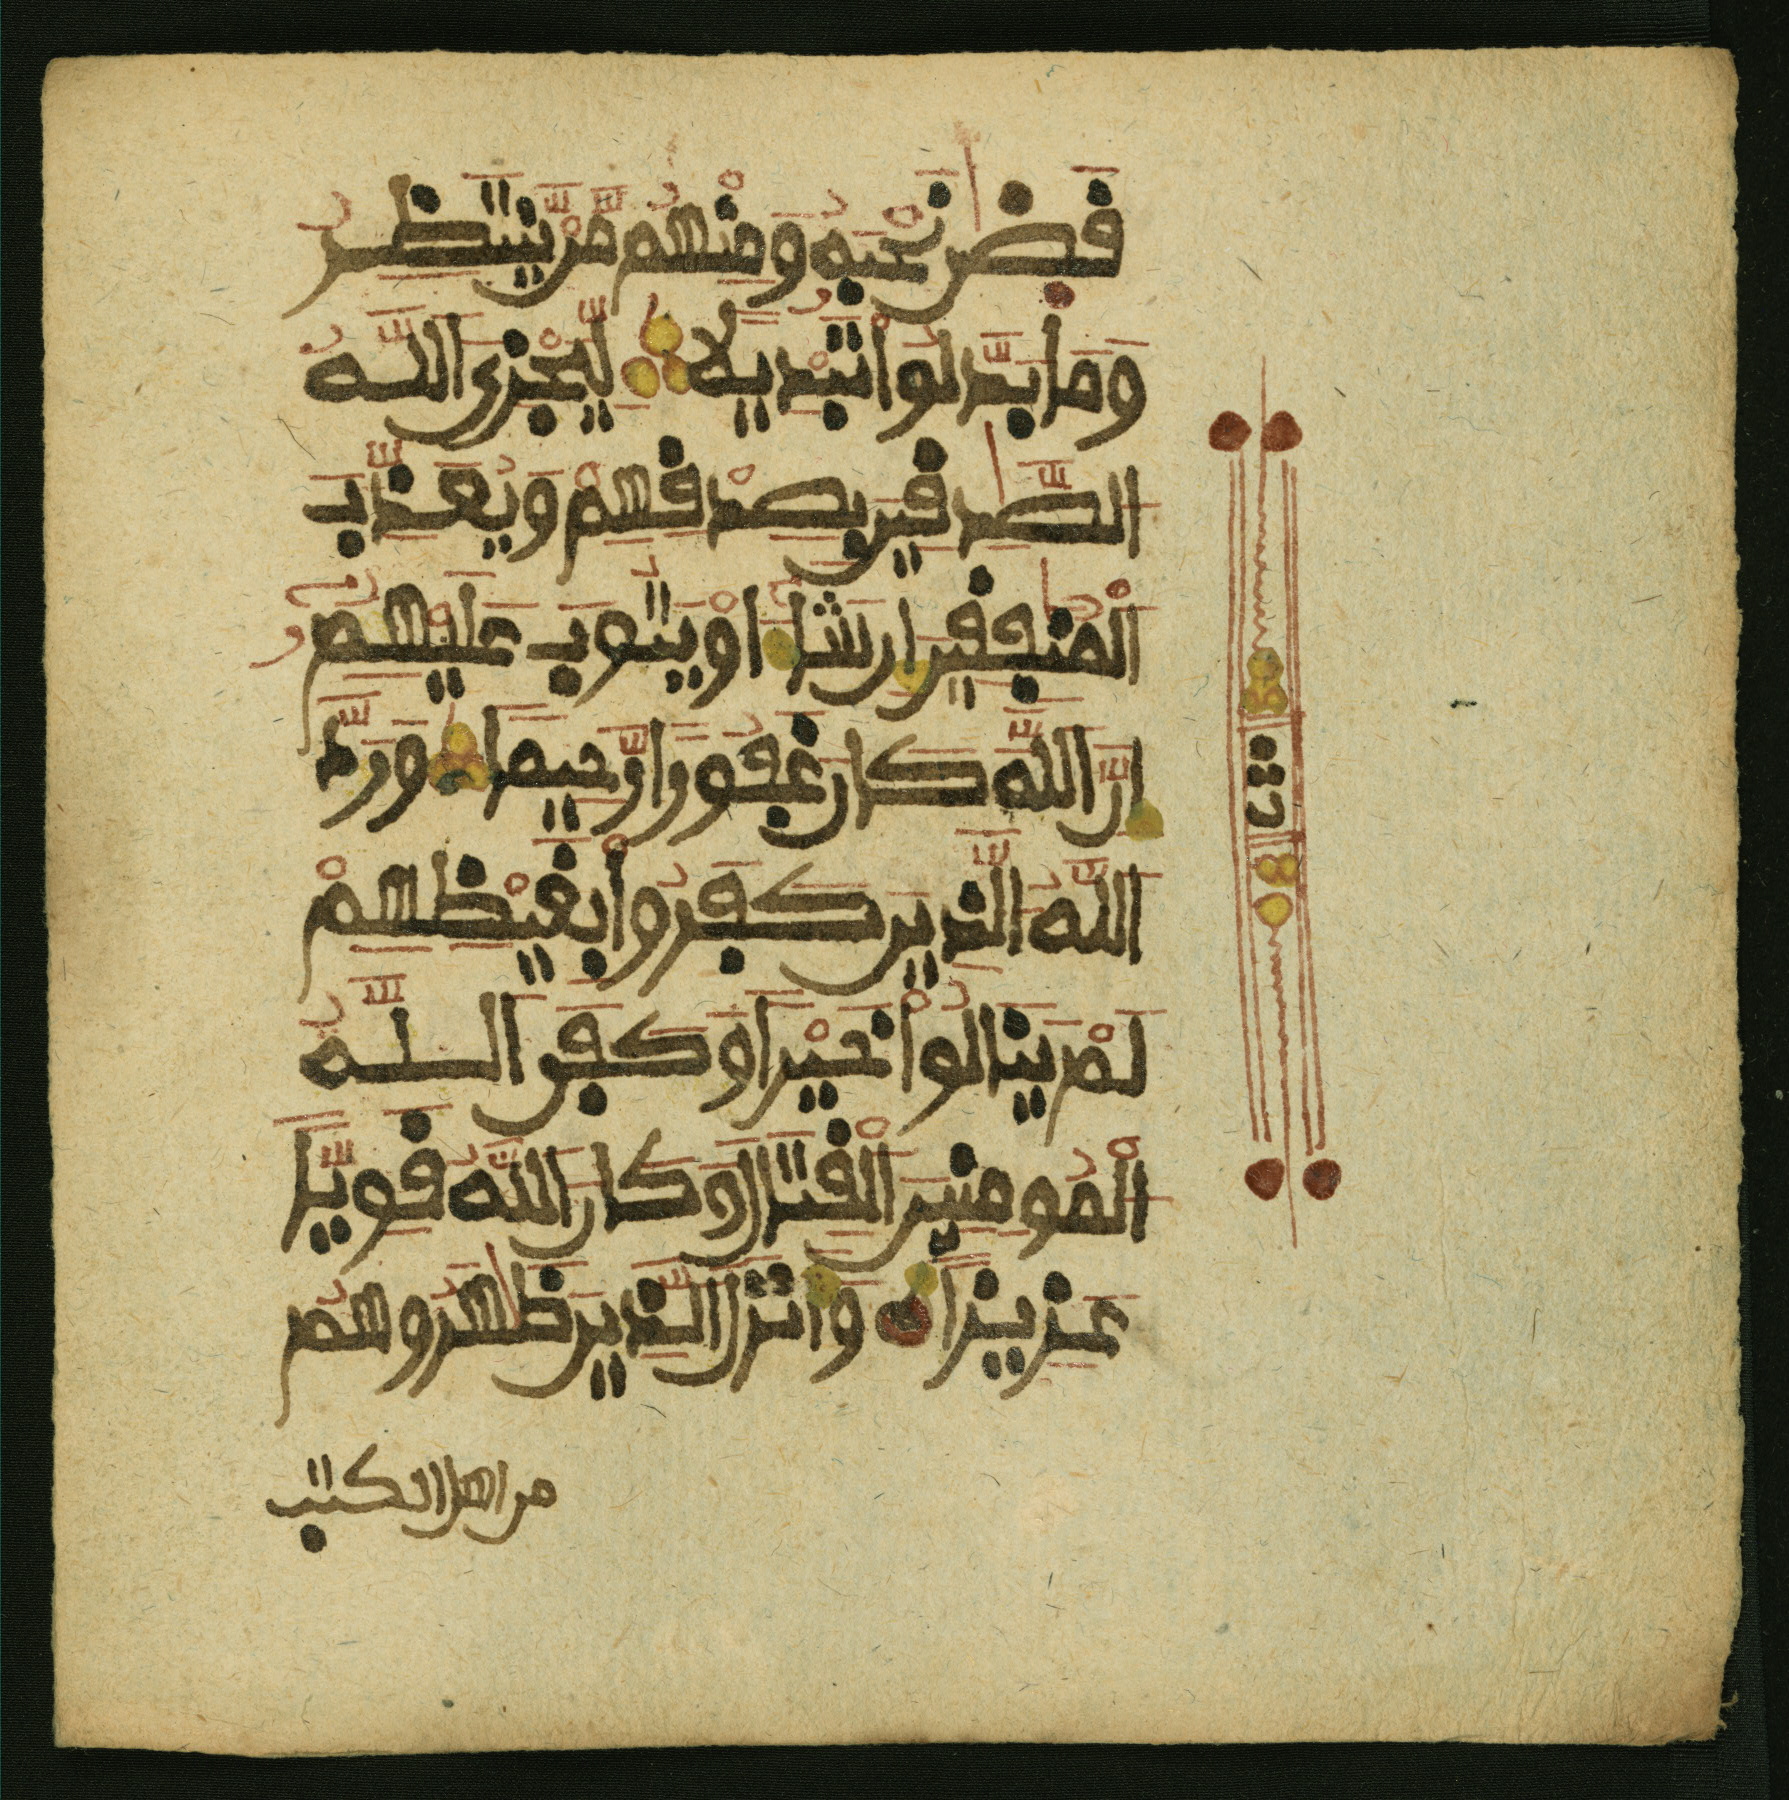 قضى نحبه ومنهم من ينتظر
وما بدلوا تبديلا ليجزي الله
الصدقين بصدقهم ويعذب
المنفقين ان شا او يتوب عليهم
ان الله كان غفورا رحيما ورد
الله الذين كفروا بغيظهم
لم ينالوا خيرا وكفى الله
المومنين القتال وكان الله قويا
عزيزا وانزل الذين ظهروهم
من اهل الكتب